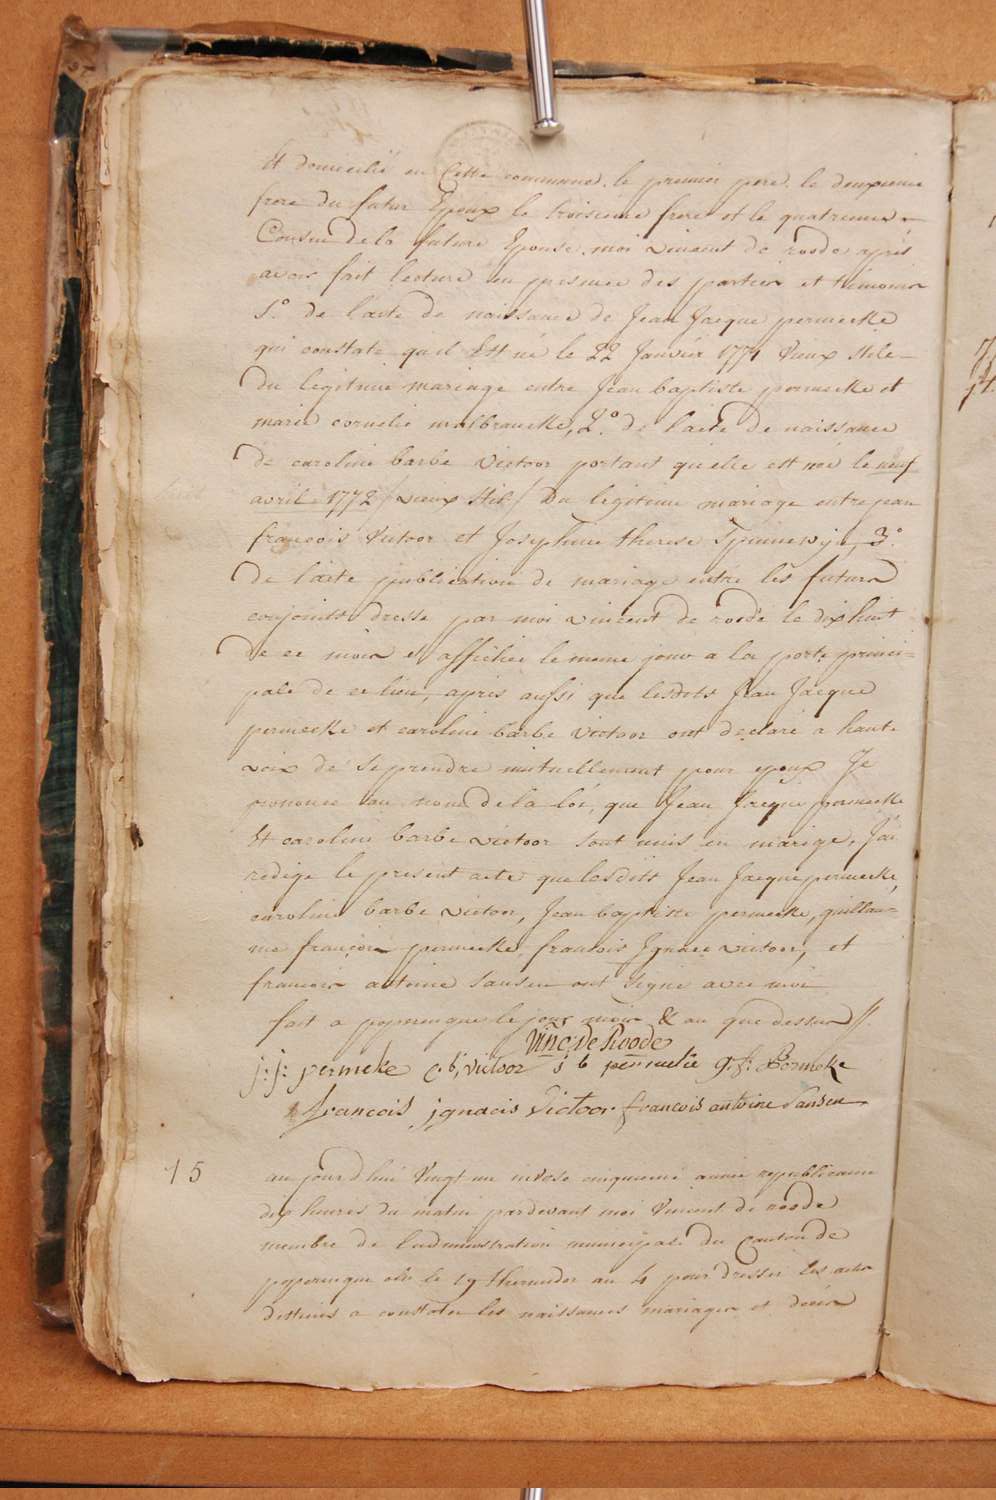 Et domicilié en Cette commune. le premier pere. le deuxieme
frere du futur Epoux le troisieme frere et le quatrieme
Cousin de la future Epouse. moi vincent de roode après
avoir fait lecture en presence des parties et temoins
1.° de l'acte de naissance de Jean Jacque permeeke
qui constate qu'il Est né le 22 Janvier 1771 Vieux stile
du legitime mariage entre Jean baptiste permeeke et
marie cornelie malbrancke, 2.° de l'acte de naissance
de caroline barbe Victoor portant qu'elle est nee le neuf
avril 1772 /vieux stil/ Du legitime mariage entre jean
francois Victoor et Josephine therese Spinnewyn, 3.°
de l'acte publication de mariage entre les futurs
conjoints dresse par moi vincent de roode le dix huit
de ce mois et affichée le meme jour a la porte princi=
pale de ce lieu, apris aussi que lesdits Jean Jacque
permeeke et caroline barbe Victoor ont declaré a haute
voix de se prendre mutuellement pour epoux Je
prononce au nom de la loi, que Jean Jacque permeeke
Et caroline barbe victoor sont unis en mariage, J'ai
redige le present acte que lesdits Jean Jacque permeeke,
caroline barbe Victoor, Jean baptiste permeeke, guillau=
me francois permeeke, francois Ignace victoor, et
francois antoine sansen ont signe avec moi
fait a poperengue le jour mois & an que dessus //.
Vinc. De Roode
j: j: permeke c. b, victoor j b permeke g. f: Permeke
francois ignacis Victoor francois antoine Sansen
15 aujourdhui Vingt un nivose cinquieme année republicaine
dix heures du matin pardevant moi Vincent de roode
membre de l'administration municipale du Canton de
poperengue elu le 19 thermidor an 4 pour dresser les actes
destinés a constater les naissances mariages et décés